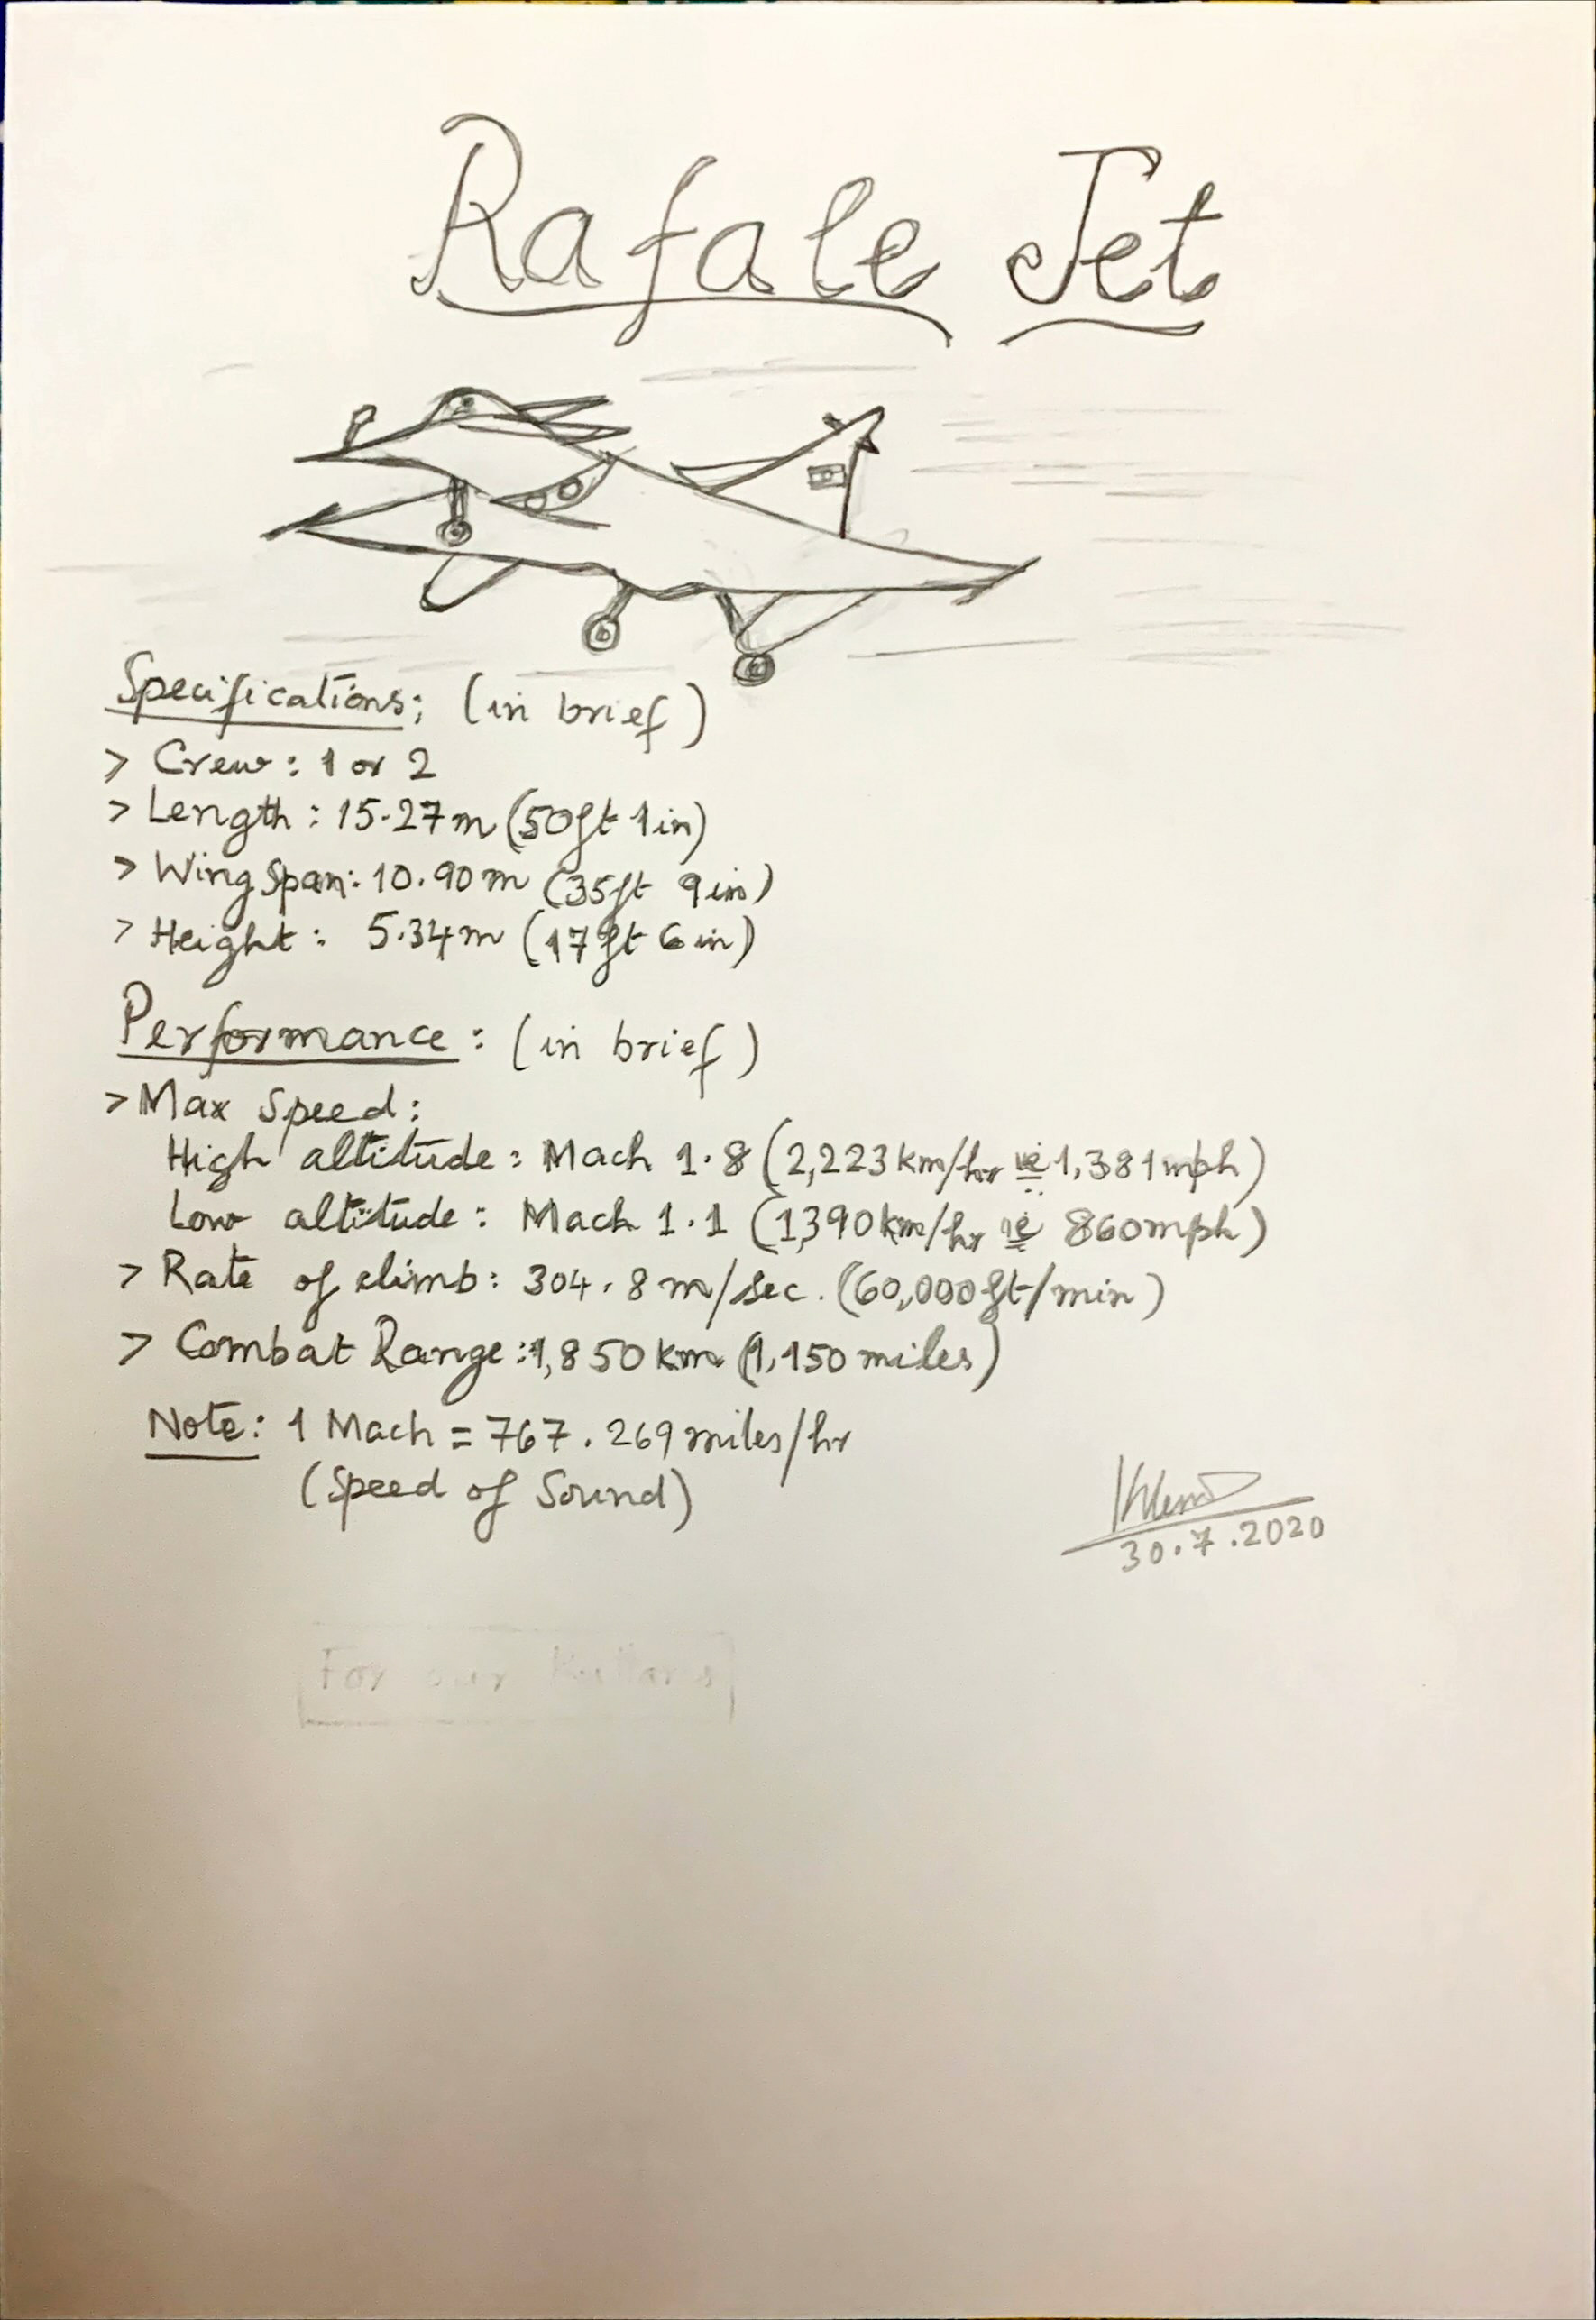 Rafale Jet
Specifications: (in brief)
> Crew: 1 or 2
> Length: 15.27m (50ft 1in)
> Wing Span: 10.90m (35ft 9in)
> Height: 5.34m (17ft 6in)
Performance: (in brief)
> Max Speed:
High altitude: Mach 1.8 (2,223km/hr ie 1,381mph)
Low altitude: Mach 1.1 (1,390km/hr ie 860mph)
> Rate of climb: 304.8m/sec. (60,000ft/min)
> Combat Range: 1,850 km (1,150 miles)
Note: 1 Mach = 767.269 miles/hr
(Speed of Sound)
30.7.2020
For our